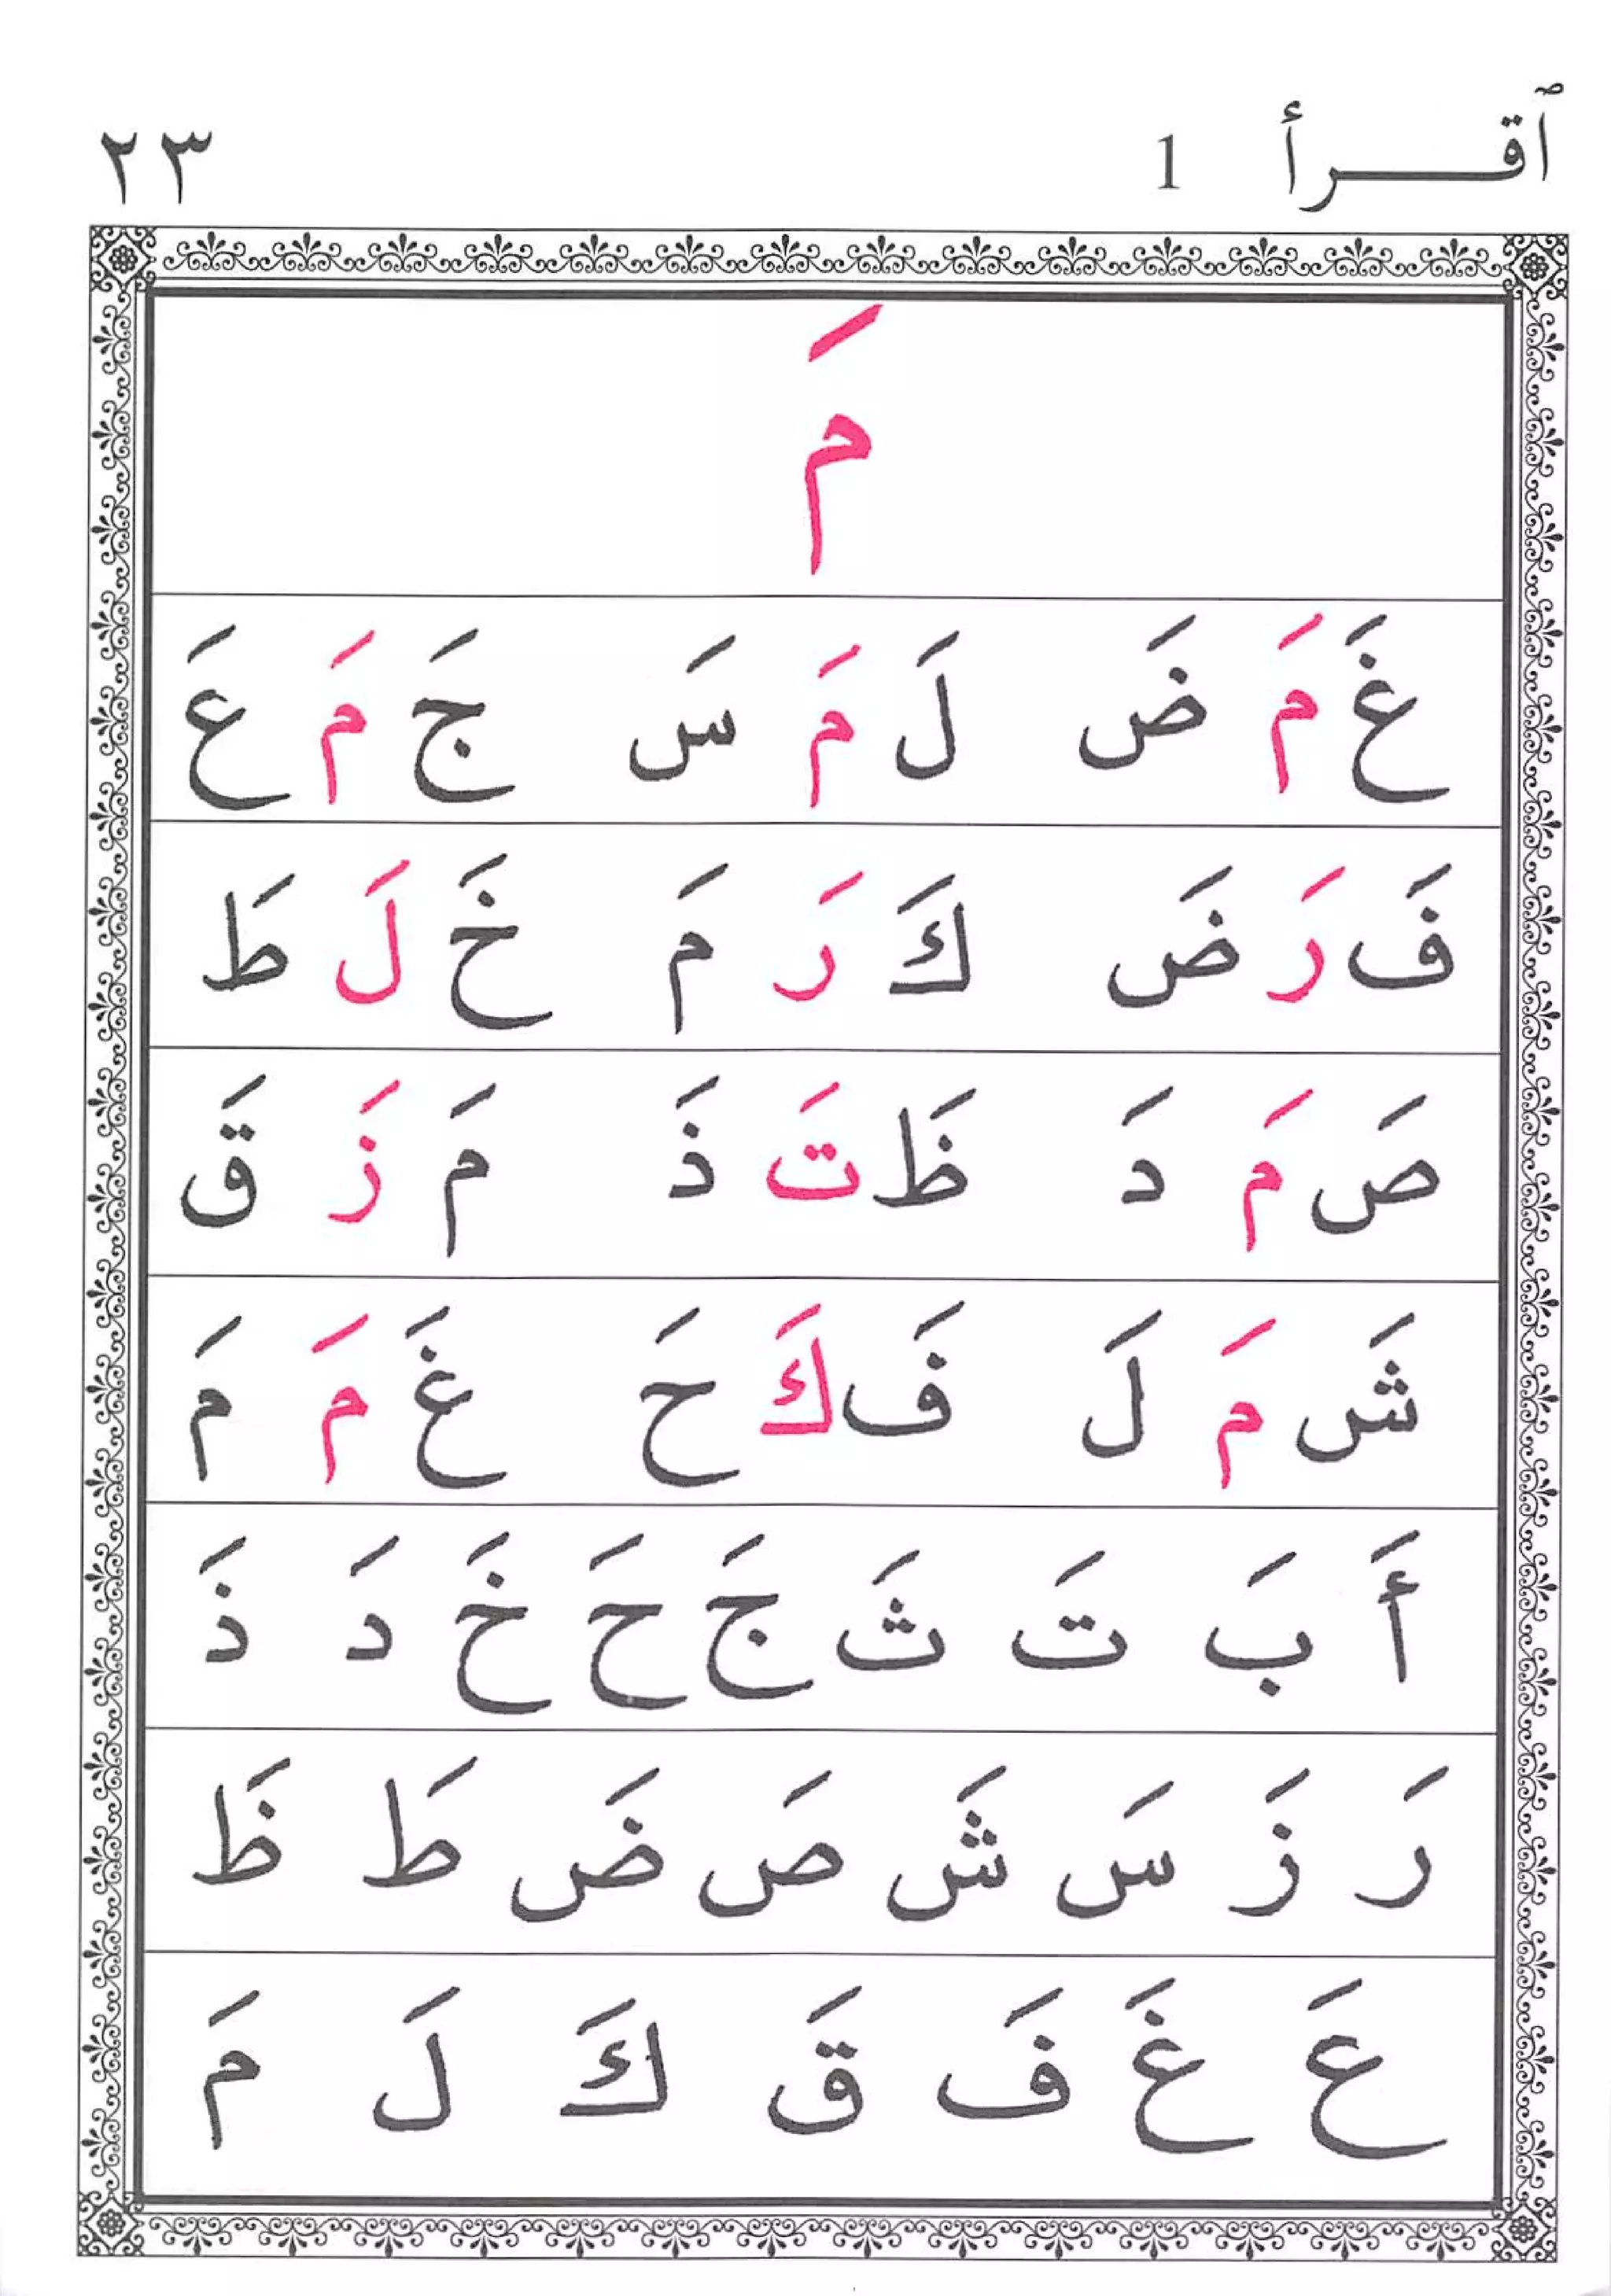 ٱقـــرأ 1 ٢٣
مَ
غَ مَ ضَ لَ مَ سَ جَ مَ عَ
فَ رَ ضَ كَ رَ مَ خَ لَ طَ
صَ مَ دَ ظَ تَ ذَ مَ زَ قَ
شَ مَ لَ فَ كَ حَ غَ مَ مَ
أَ بَ تَ ثَ جَ حَ خَ دَ ذَ
رَ زَ سَ شَ صَ ضَ طَ ظَ
عَ غَ فَ قَ كَ لَ مَ